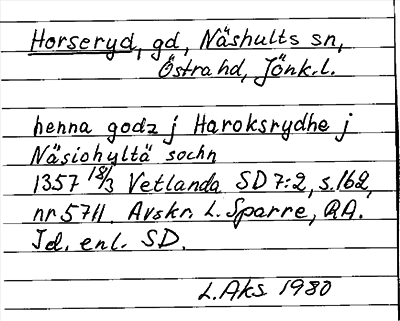 Horseryd, gd, Näshults sn,
Östra hd, Jönk.l.
henna godz j Haroksrydhe j
Näsiohyltä sochn
1357 18/3 Vetlanda SD 7:2, s.162,
nr 5711. Avskr. L. Sparre, RA.
Id. enl. SD.
L.Aks 1980